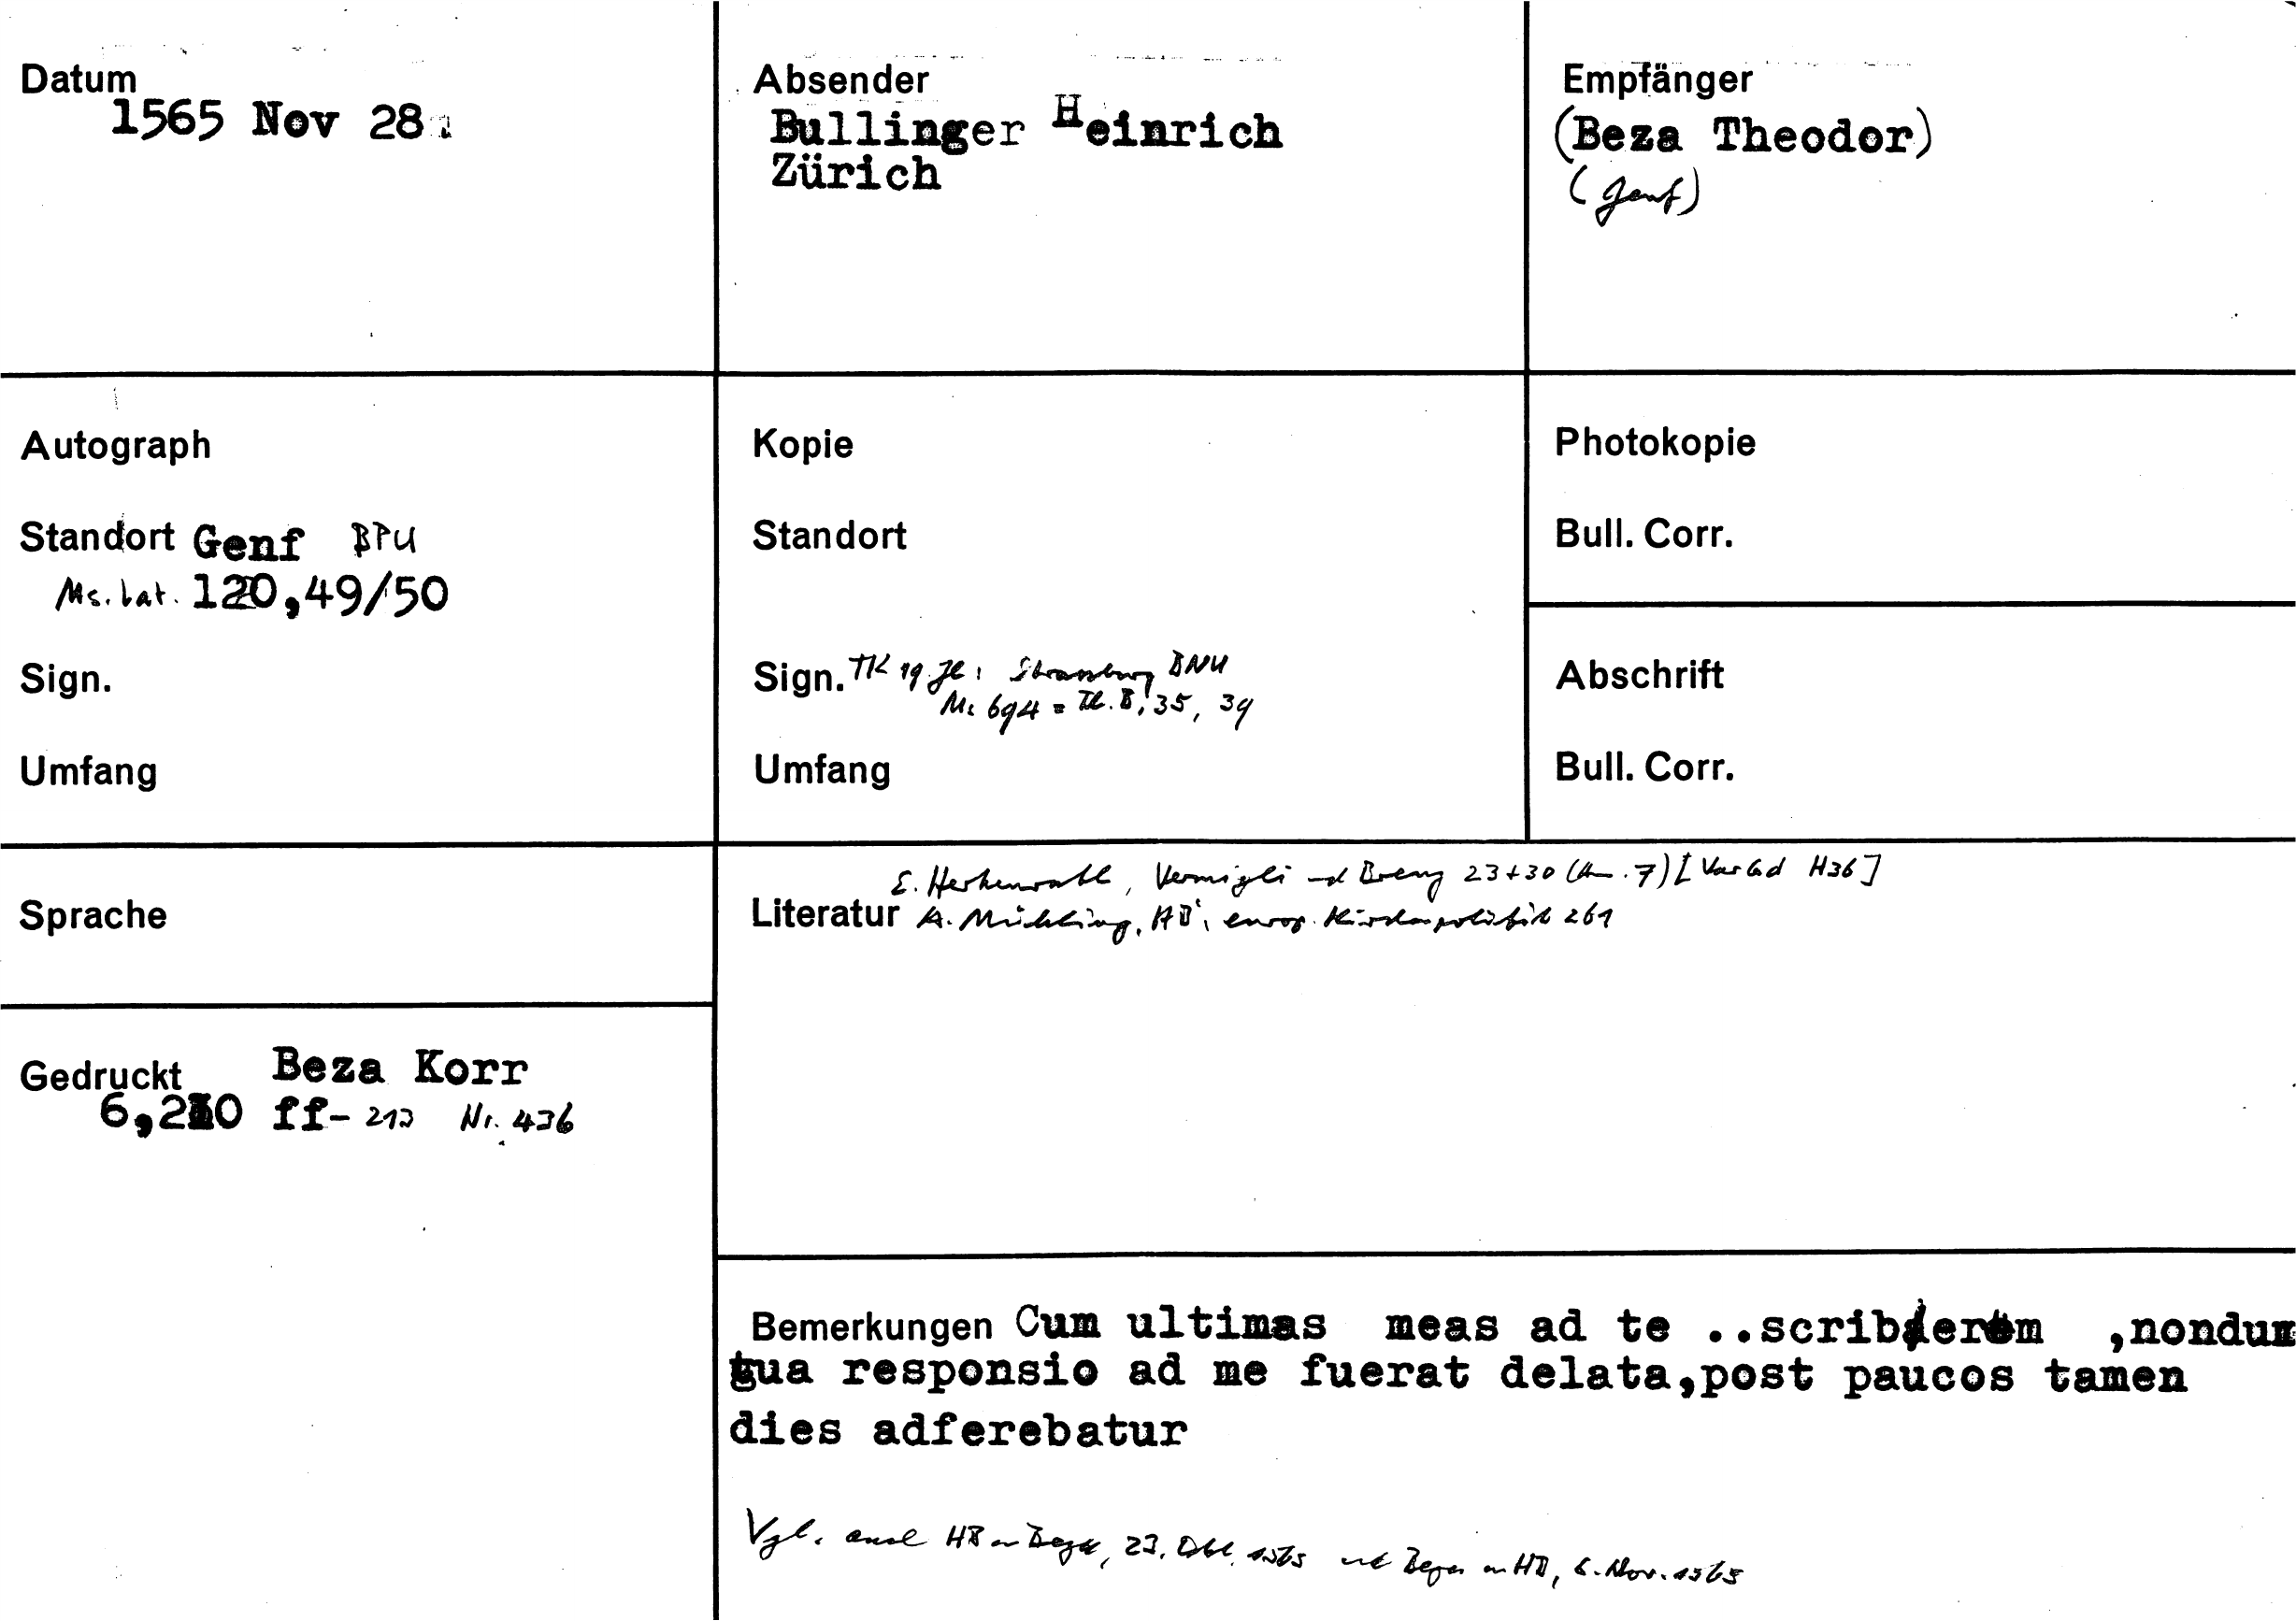 Datum
1565 Nov 28
Absender
Bullinger Heinrich
Zürich
Empfänger
(Beza Theodor)
(Genf)
Autograph
Standort Genf BPU
Ms. lat. 120,49/50
Sign.
Umfang
Kopie
Standort
Sign. TK 19. Jh: Strassburg BNU
Ms 694 = Th. B. 35, 39
Umfang
Photokopie
Bull. Corr.
Abschrift
Bull. Corr.
Sprache
Gedruckt Beza Korr
6,210 ff- 213 Nr. 436
E. Herkenrath, Vermigli und Brenz 23+30 (Anm. 7) [Var H36]
Literatur A. Mühling, HB's europ. Kirchenpolitik 261
Bemerkungen Cum ultimas meas ad te ..scriberem ,nondum
tua responsio ad me fuerat delata,post paucos tamen
dies adferebatur
Vgl. auch HB an Beza, 23. Okt. 1565 und Beza an HB, 6. Nov. 1565